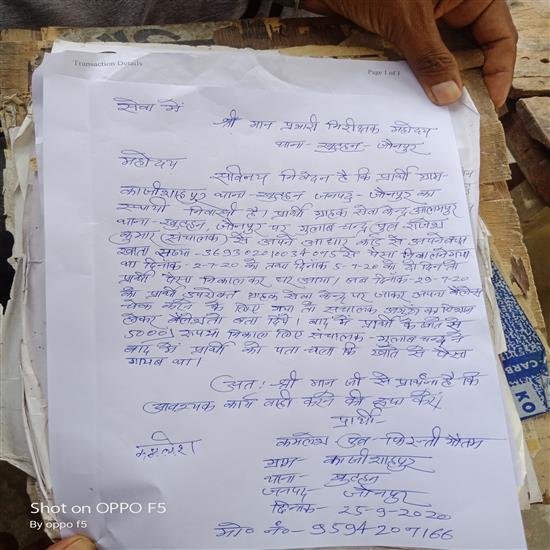 Transaction Details
Page 1 of 1
सेवा में
श्री मान प्रभारी निरीक्षक महोदय
थाना- खुटहन- जौनपुर
महोदय
सविनय निवेदन है कि प्रार्थी ग्राम
काजीशाहपुर थाना- खुटहन जनपद- जौनपुर का
स्थायी निवासी है। प्रार्थी ग्राहक सेवा केन्द्र आलमपुर
थाना- खुटहन, जौनपुर पर गुलाब चन्द्र पुत्र राजेश
कुमार (संचालक) से अपने आधार कार्ड से अपने
खाता सख्या- से पैसा निकालने गया
था दिनांक- 2-7-20 को तथा दिनांक 5-7-20 को दो दिन में
प्रार्थी पैसा निकाल कर घर आया। जब दिनांक- 29-7-20
को प्रार्थी उपरोक्त ग्राहक सेवा केन्द्र पर जाकर अपना बैलेंस
चेक करने के लिए गया तो संचालक अंगूठा का निशान
लेकर बैलेंस बता दिये। बाद में प्रार्थी के खाते से
5000/ रूपया निकाल लिए संचालक - गुलाब चन्द्र ने
बाद में प्रार्थी को पता चला कि खाते से पैसा
गायब था।
अत: श्री मान जी से प्रार्थना है कि
आवश्यक कार्यवाही करने की कृपा करें।
प्रार्थी-
कमलेश पुत्र- फिरन्ती गौतम
कमलेश
ग्राम- काजीशाहपुर
थाना- खुटहन
जनपद जौनपुर
दिनांक- 25-9-2020
मो० नं०- 9594207166
Shot on OPPO F5
By oppo f5
KO